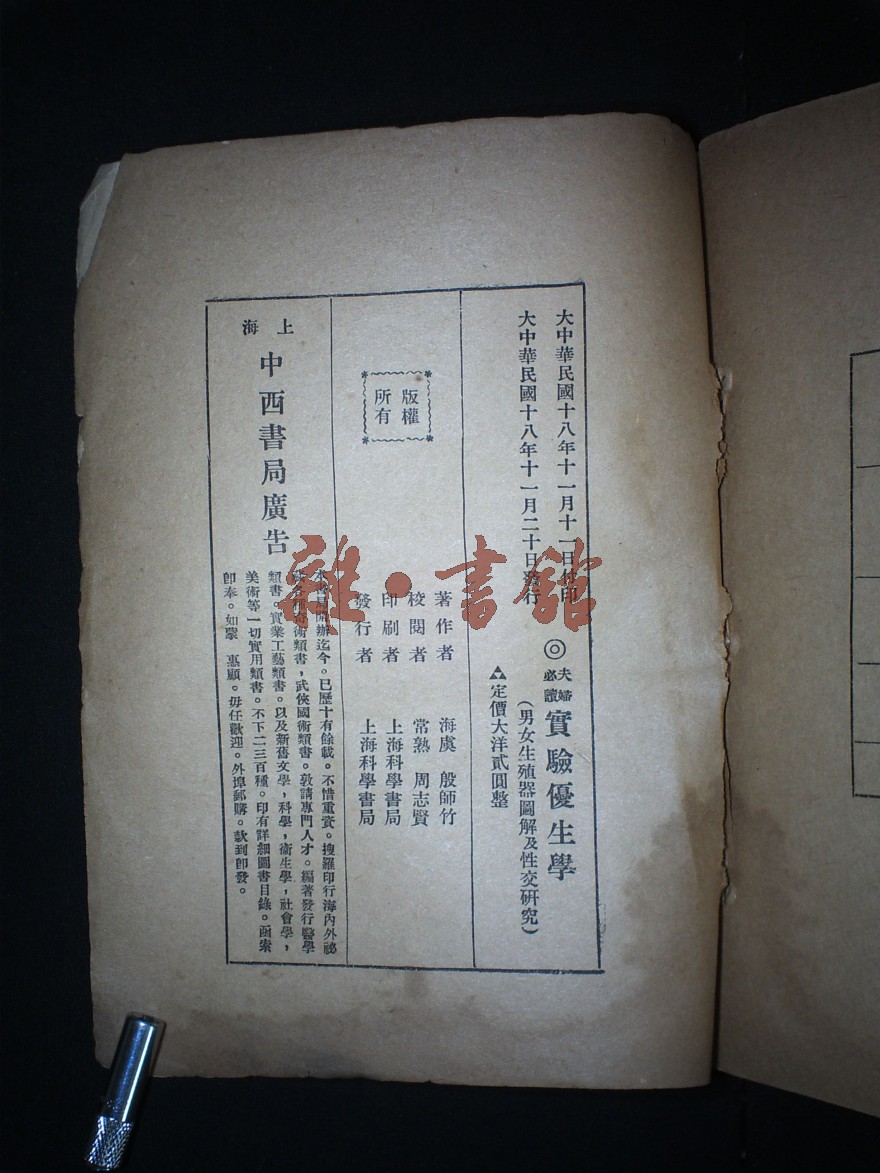 大中華民國十八年十一月十一日付印
大中華民國十八年十一月二十日發行
◎夫婦必讀實驗優生學
(男女生殖器圖解及性交研究)
▲定價大洋貳圓整
版權
所有
著作者 海虞 殷師竹
校閱者 常熟 周志賢
印刷者 上海科學書局
發行者 上海科學書局
上海
中西書局廣告
本書局開辦迄今。已歷十有餘載。不惜重資。搜羅印行海內外祕
各種奇術類書,武俠國術類書。敦請專門人才。編著發行醫學
類書。實業工藝類書。以及新舊文學,科學,衞生學,社會學,
美術等一切實用類書。不下二三百種。印有詳細圖書目錄。函索
卽奉。如蒙 惠顧。毋任歡迎。外埠郵購。款到卽發。
雜·書館